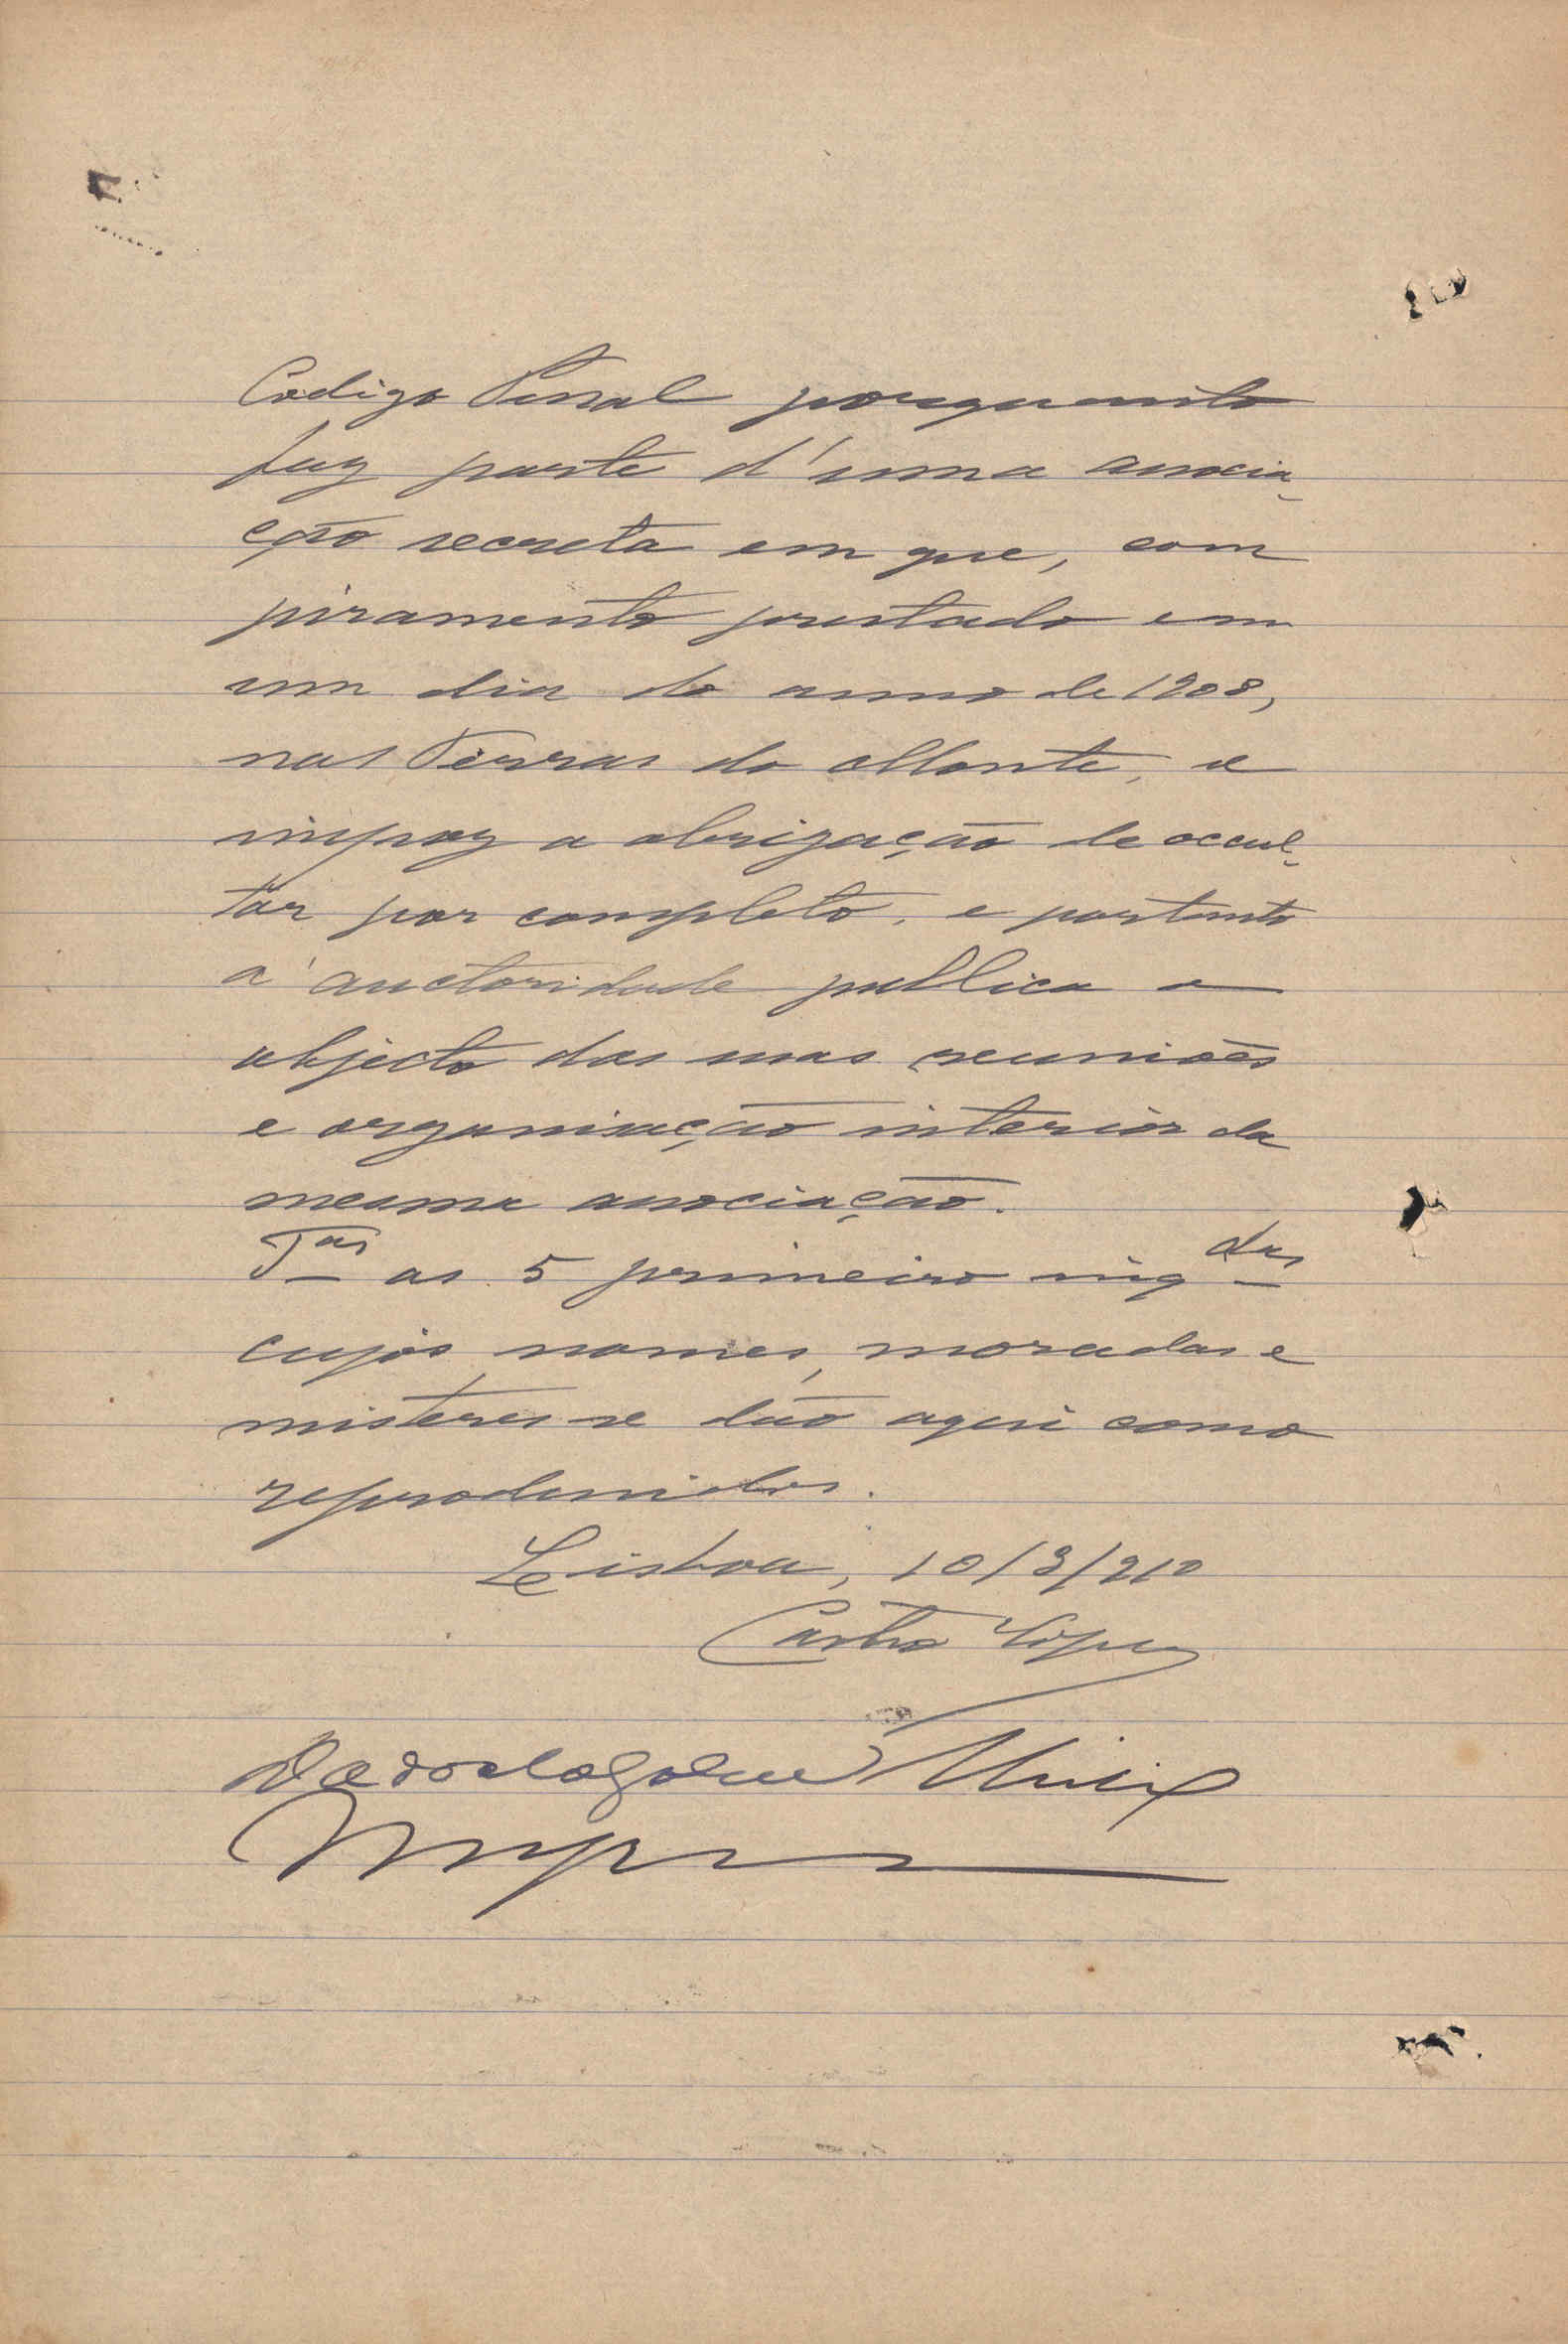 Codigo Penal porquanto
faz parte d'uma associa-
ção secreta em que, com
juramento prestado em
um dia do anno de 1908,
nas Terras do Monte, se
impoz a obrigação de occul-
tar por completo, e portanto
á auctoridade publica o
objecto das suas reuniões
e organisação interior da
mesma associação.
Tas as 5 primeiro inqdas
cujos nomes, moradas e
misteres se dão aqui como
reprodusidos.
Lisboa, 10/3/910
Castro Lopes